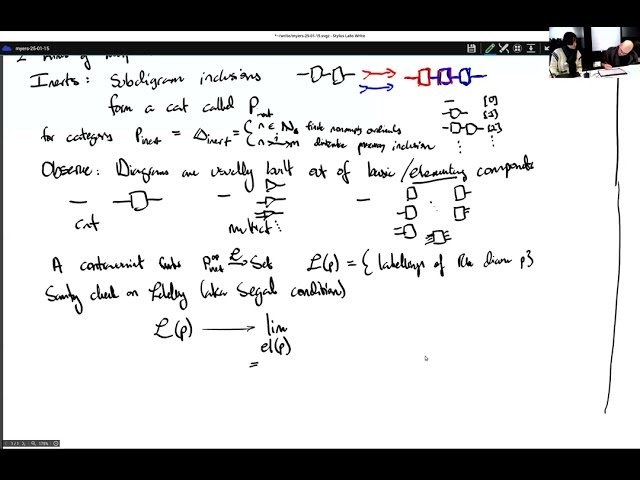 *~/write/myers-25-01-15.svgz - Stylus Labs Write
myers-25-01-15
Inerts: Subdigram inclusions
form a cat called P_inert
[0]
[1]
[2]
for categories P_inert = Δ_inert = { n ∈ N, finite nonempty ordinals
n → m distance preserving inclusion
Observe: Diagrams are usually built out of basic / elementary components
cat
multicat
A contravariant functor P_inert^op →^ℒ Sets ℒ(p) = { labellings of the diagram p }
Sanity check on Labeling (aka Segal condition)
ℒ(p) → lim
el(p)
=
1 / 1
170%